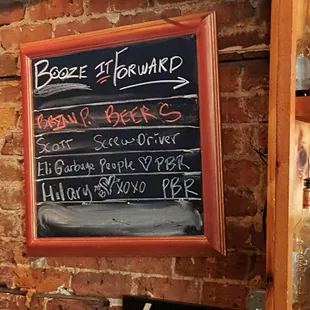 Booze It Forward
Brian P. Beers
Scott Screw Driver
Eli Garbage People ♡ PBR
Hilary xoxo PBR